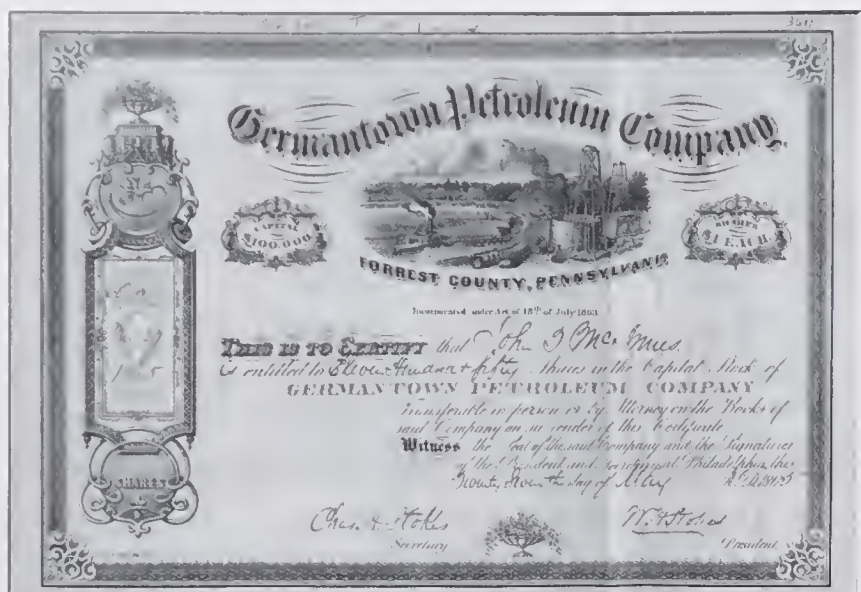 Germantown Petroleum Company.
CAPITAL
$100,000
SHARES
$1 EACH
FORREST COUNTY, PENNSYLVANIA
Incorporated under Act of 18th of July 1863
THIS IS TO CERTIFY that John
is entitled to Eleven Hundred & fifty Shares in the Capital Stock of
GERMANTOWN PETROLEUM COMPANY
Transferable in person or by Attorney on the Books of
said Company on of this Certificate
Witness the Seal of the said Company and the Signatures
of the President and Philadelphia this
day of
SHARES
Chas. Stokes
Secretary
Stokes
President